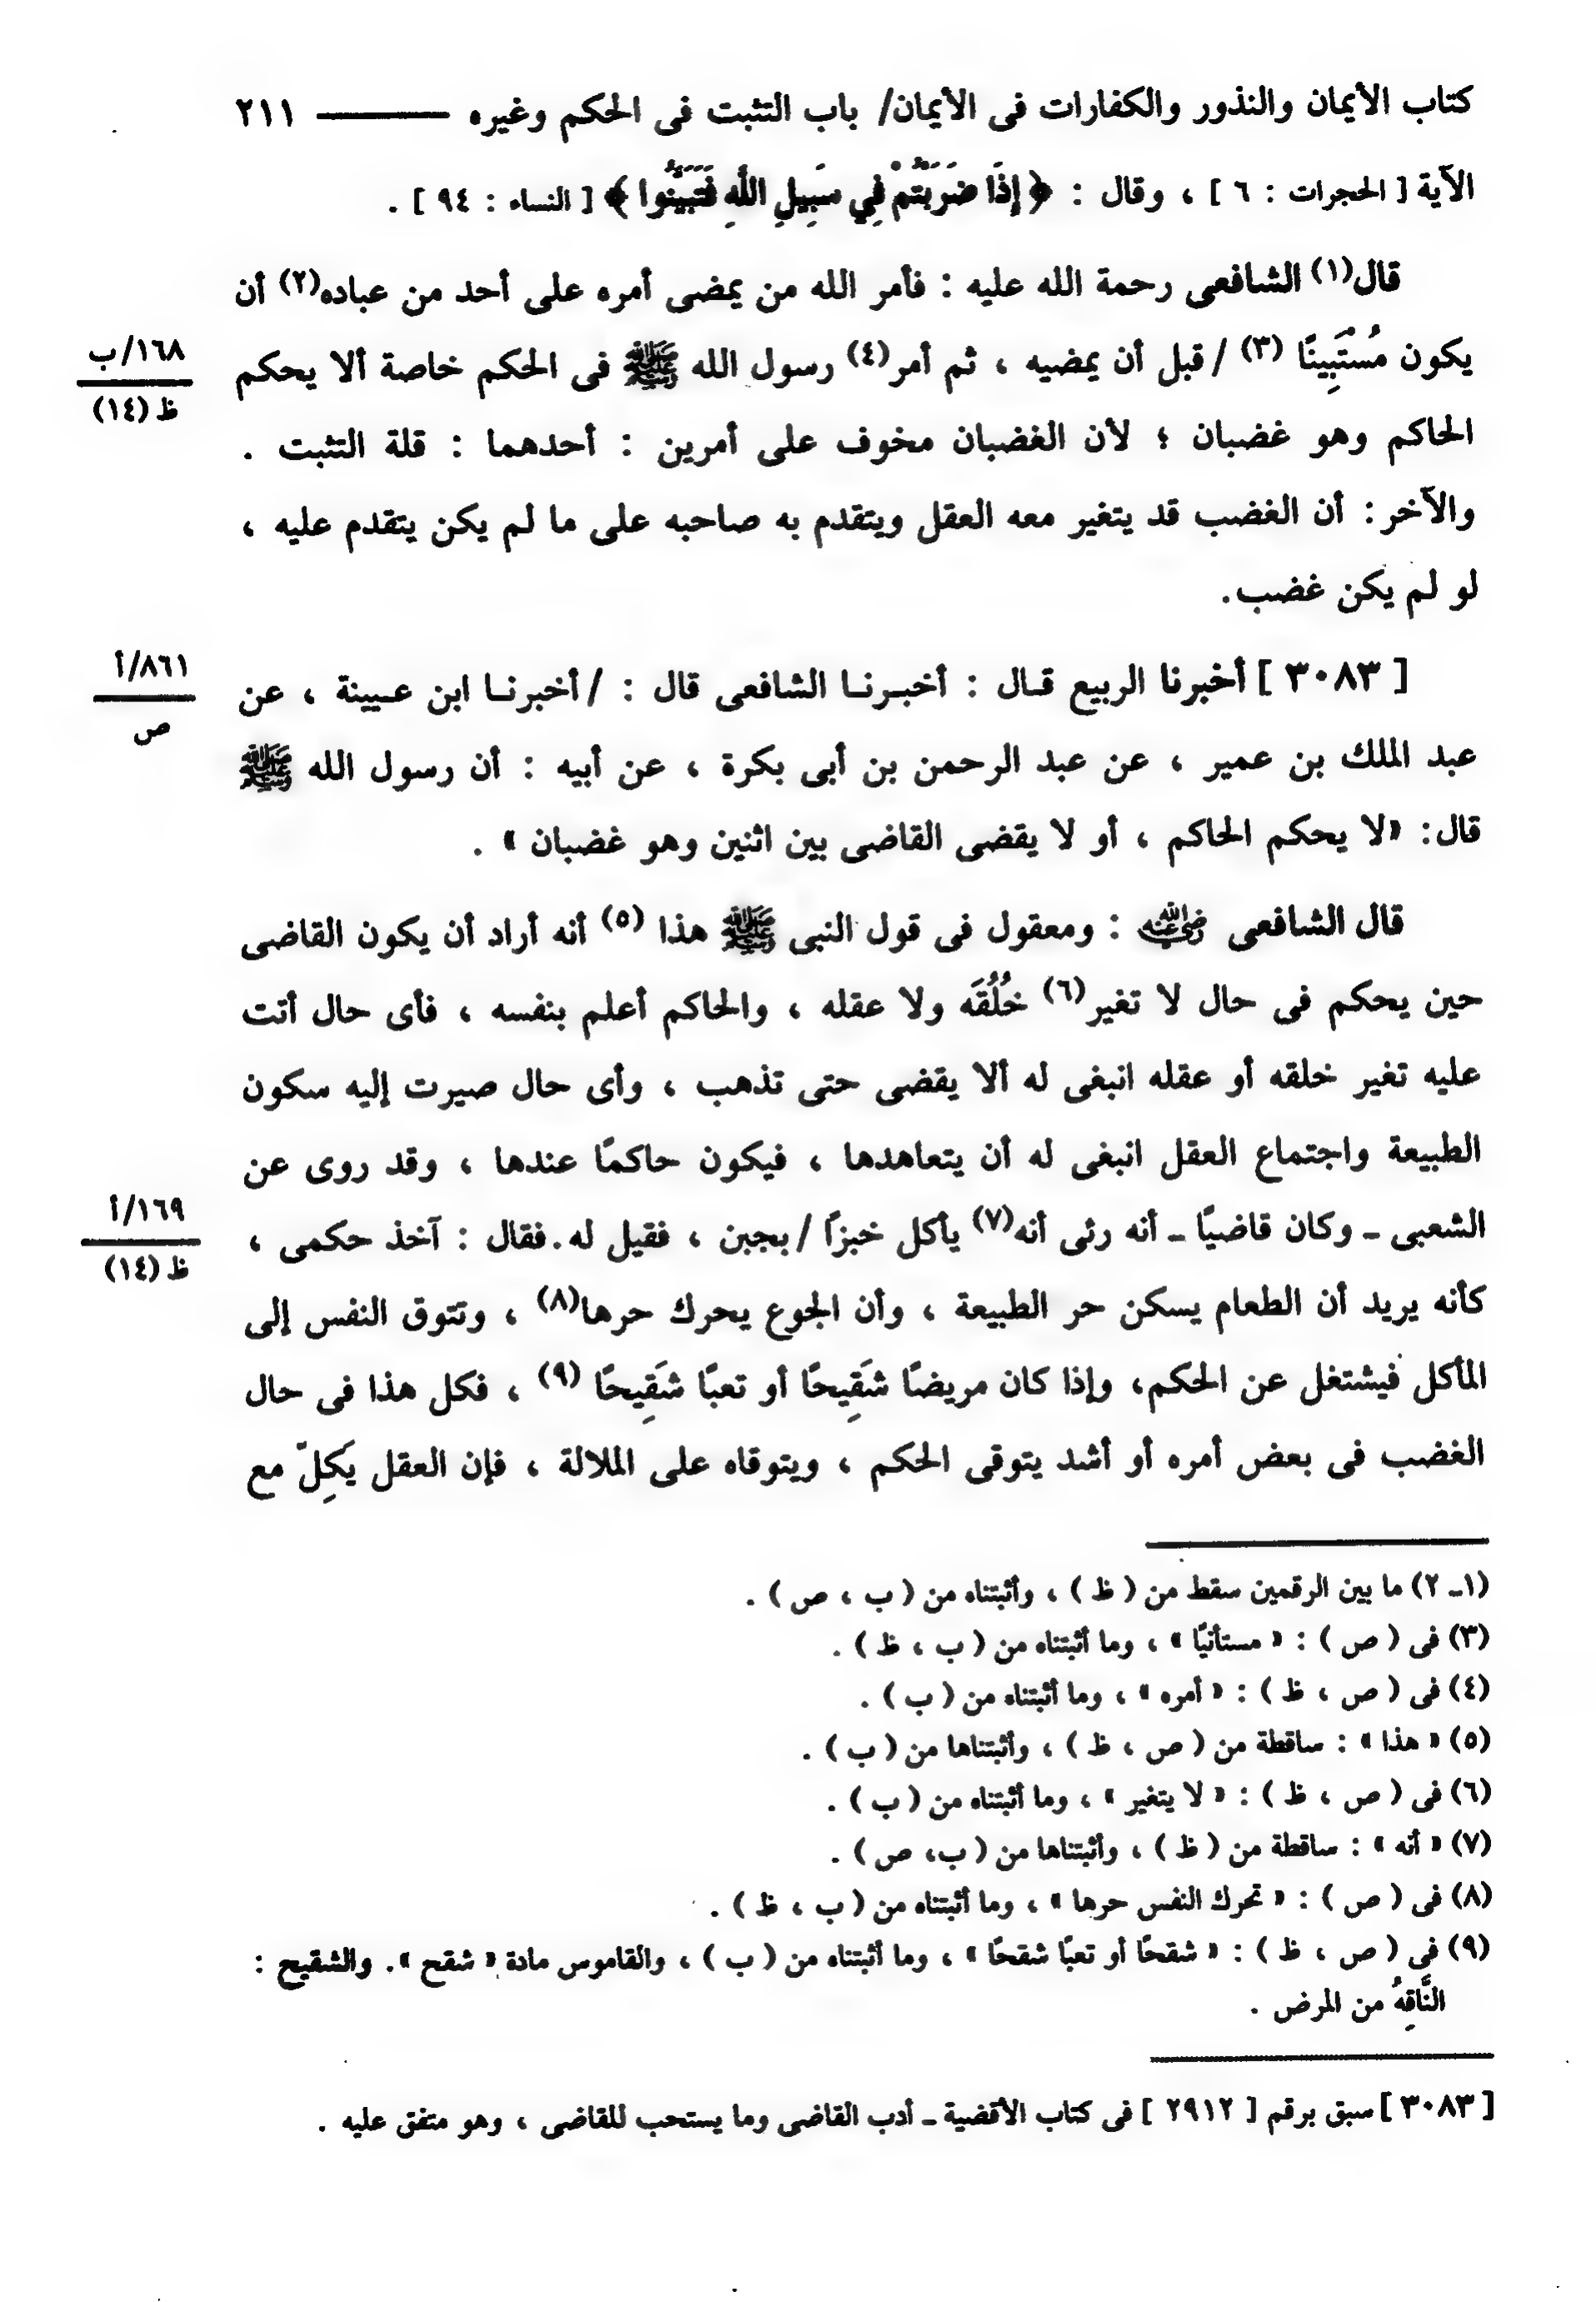 كتاب الأيمان والنذور والكفارات فى الأيمان/ باب التثبت فى الحكم وغيره ——— ٢١١
الآية [ الحجرات : ٦ ] ، وقال : ﴿ إِذَا ضَرَبْتُمْ فِي سَبِيلِ اللَّهِ فَتَبَيَّنُوا ﴾ [ النساء : ٩٤ ] .
قال(١) الشافعى رحمة الله عليه : فأمر الله من يمضى أمره على أحد من عباده(٢) أن
يكون مُسْتَبِينًا (٣) / قبل أن يمضيه ، ثم أمر(٤) رسول الله ﷺ فى الحكم خاصة ألا يحكم
١٦٨/ب
ظ (١٤)
الحاكم وهو غضبان ؛ لأن الغضبان مخوف على أمرين : أحدهما : قلة التثبت .
والآخر : أن الغضب قد يتغير معه العقل ويتقدم به صاحبه على ما لم يكن يتقدم عليه ،
لو لم يكن غضب.
[ ٣٠٨٣ ] أخبرنا الربيع قال : أخبرنا الشافعى قال : / أخبرنا ابن عيينة ، عن
٨٦١/أ
ص
عبد الملك بن عمير ، عن عبد الرحمن بن أبى بكرة ، عن أبيه : أن رسول الله ﷺ
قال : «لا يحكم الحاكم ، أو لا يقضى القاضى بين اثنين وهو غضبان » .
قال الشافعى رضي الله عنه : ومعقول فى قول النبى ﷺ هذا (٥) أنه أراد أن يكون القاضى
حين يحكم فى حال لا تغير(٦) خُلُقَه ولا عقله ، والحاكم أعلم بنفسه ، فأى حال أتت
عليه تغير خلقه أو عقله انبغى له ألا يقضى حتى تذهب ، وأى حال صيرت إليه سكون
الطبيعة واجتماع العقل انبغى له أن يتعاهدها ، فيكون حاكمًا عندها ، وقد روى عن
الشعبى ـ وكان قاضيًا ـ أنه رئى أنه(٧) يأكل خبزًا / بجبن ، فقيل له . فقال : آخذ حكمى ،
١٦٩/أ
ظ (١٤)
كأنه يريد أن الطعام يسكن حر الطبيعة ، وأن الجوع يحرك حرها(٨) ، وتتوق النفس إلى
المأكل فيشتغل عن الحكم، وإذا كان مريضًا شَقِيحًا أو تعبًا شَقِيحًا (٩) ، فكل هذا فى حال
الغضب فى بعض أمره أو أشد يتوقى الحكم ، ويتوقاه على الملالة ، فإن العقل يَكِلّ مع
(١ـ ٢) ما بين الرقمين سقط من ( ظ ) ، وأثبتناه من ( ب ، ص ) .
(٣) فى ( ص ) : « مستأنيًا » ، وما أثبتناه من ( ب ، ظ ) .
(٤) فى ( ص ، ظ ) : « أمره » ، وما أثبتناه من ( ب ) .
(٥) « هذا » : ساقطة من ( ص ، ظ ) ، وأثبتناها من ( ب ) .
(٦) فى ( ص ، ظ ) : « لا يتغير » ، وما أثبتناه من ( ب ) .
(٧) « أنه » : ساقطة من ( ظ ) ، وأثبتناها من ( ب، ص ) .
(٨) فى ( ص ) : « تحرك النفس حرها » ، وما أثبتناه من ( ب ، ظ ) .
(٩) فى ( ص ، ظ ) : « شقحًا أو تعبًا شقحًا » ، وما أثبتناه من ( ب ) ، والقاموس مادة « شقح ». والشقيح :
النَّاقِهُ من المرض .
[ ٣٠٨٣ ] سبق برقم [ ٢٩١٢ ] فى كتاب الأقضية ـ أدب القاضى وما يستحب للقاضى ، وهو متفق عليه .